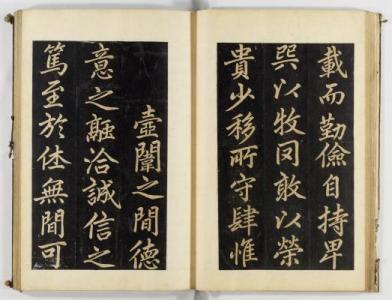 載而勤儉自持卑
巽以牧罔敢以榮
貴少移所守肆惟
壼闈之間德
意之融洽誠信之
篤至於無間可